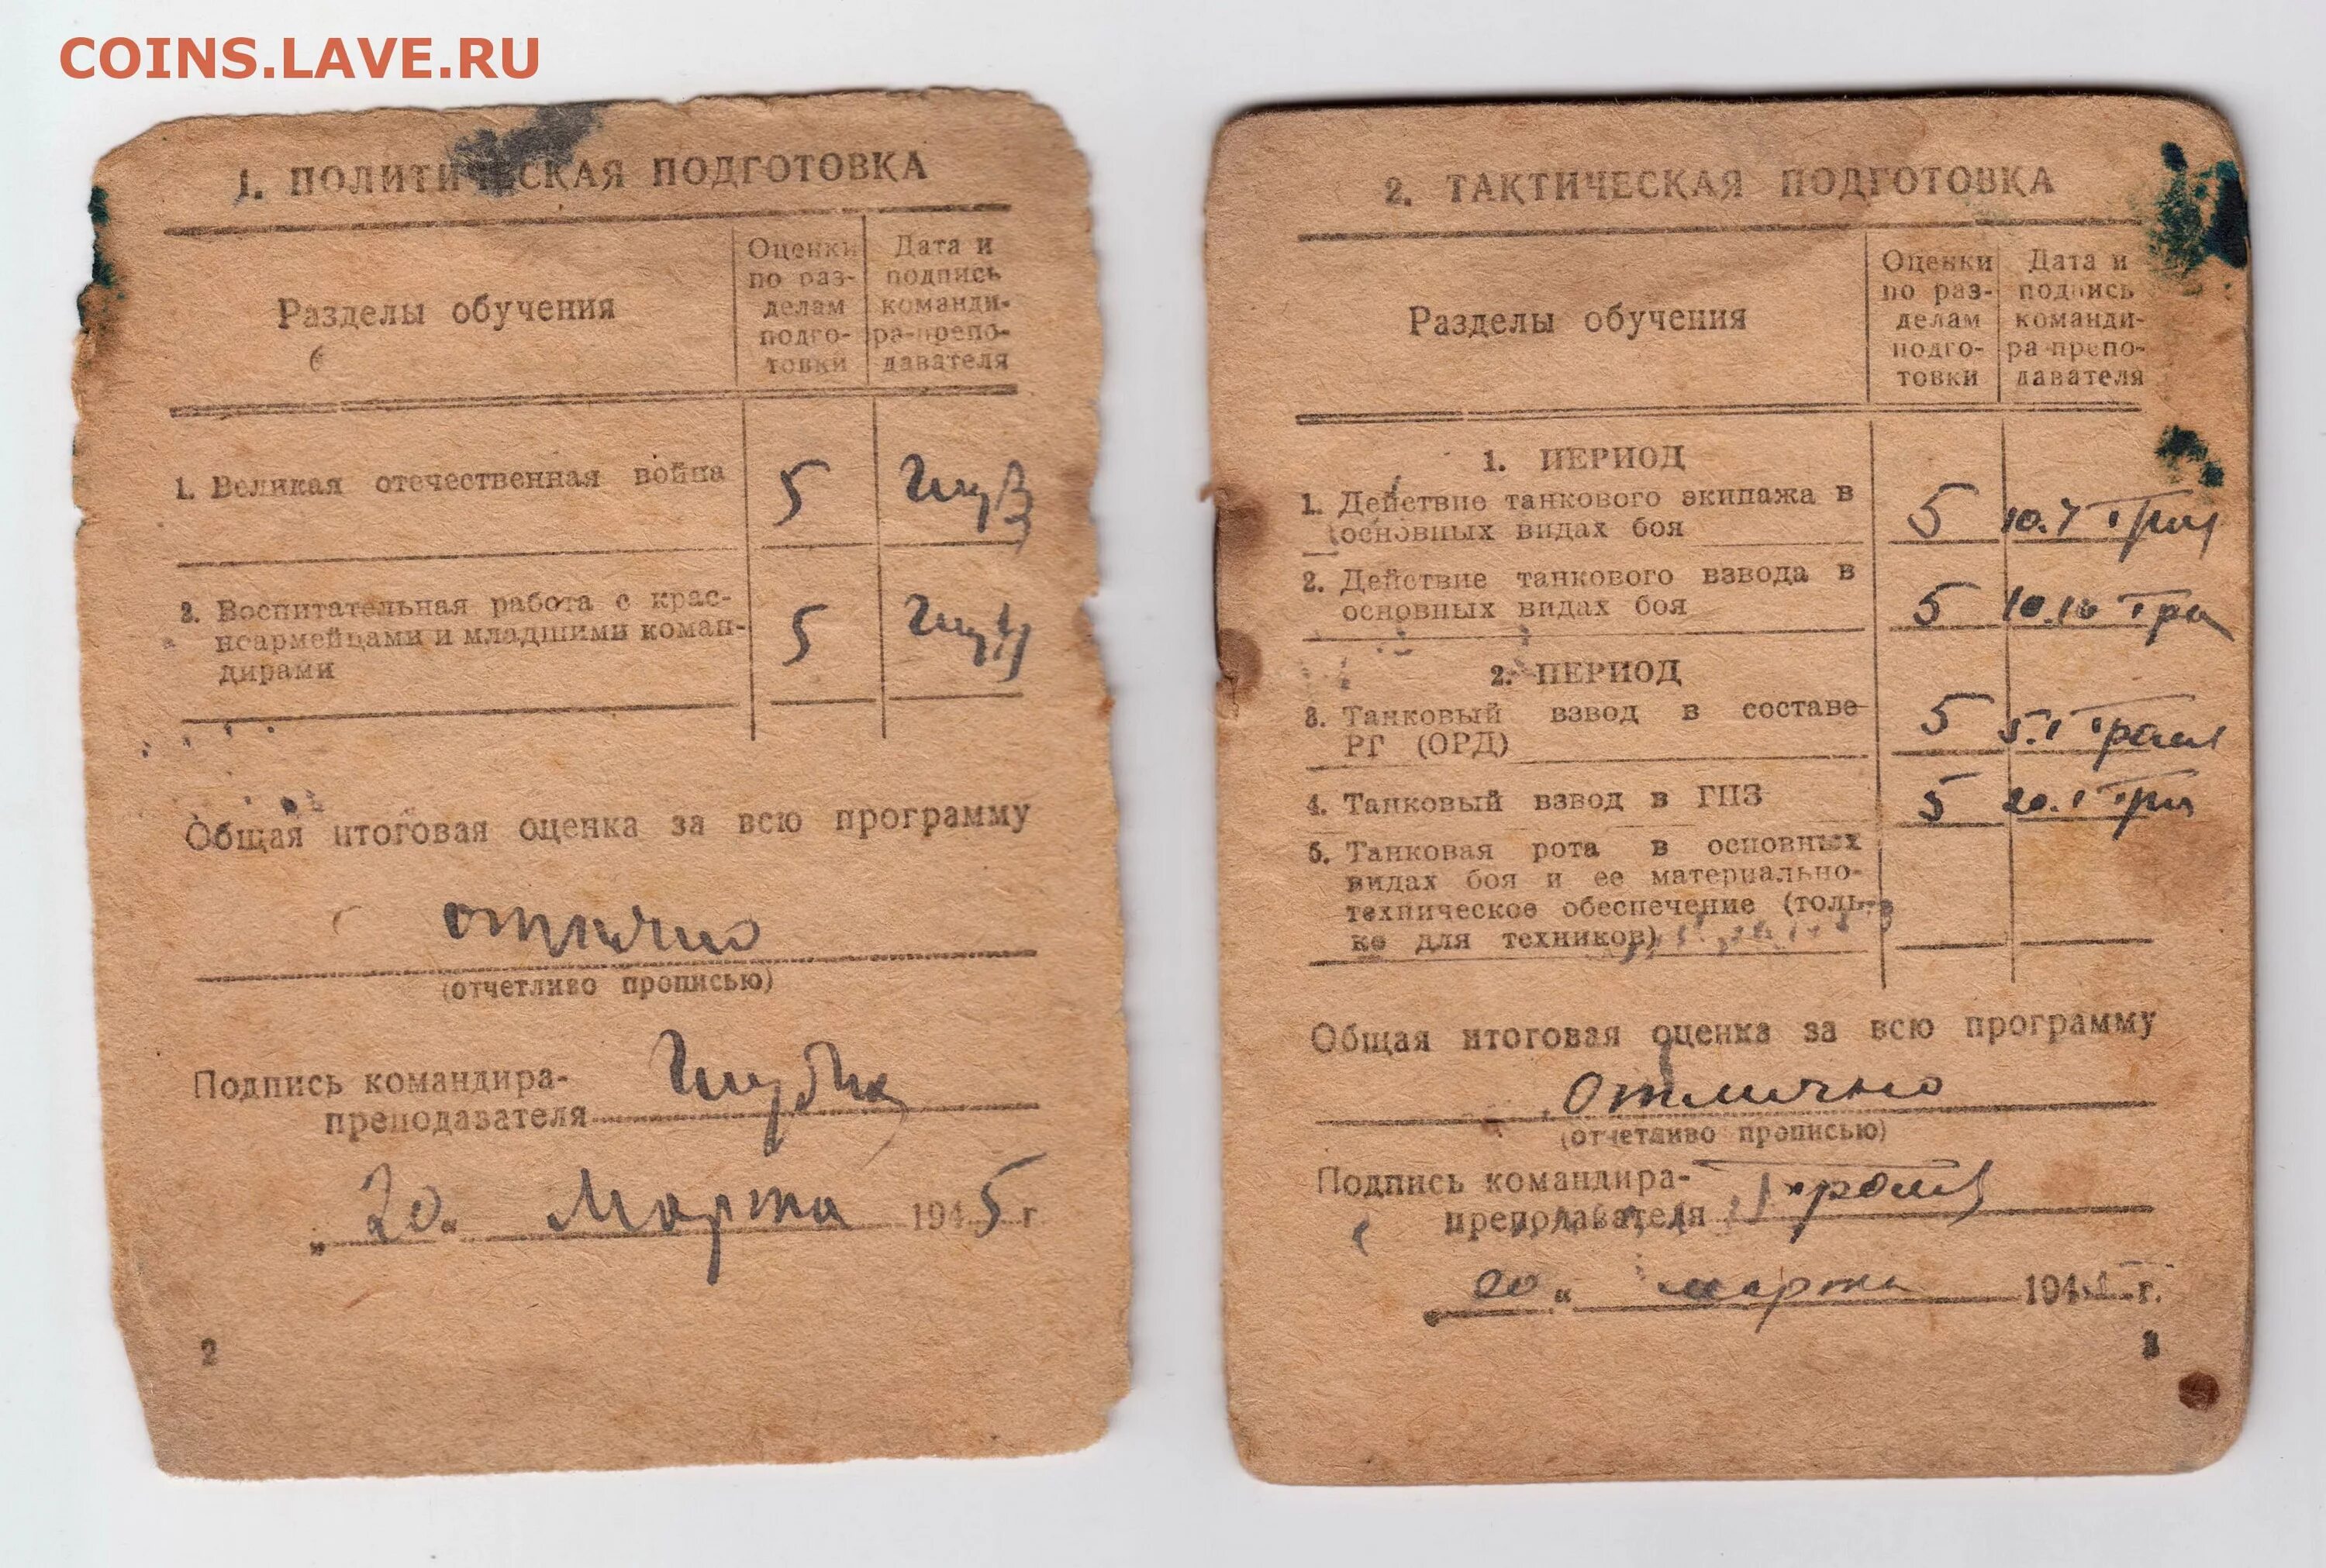 COINS.LAVE.RU
1. ПОЛИТИЧЕСКАЯ ПОДГОТОВКА
Разделы обучения
Оценки
по раз-
делам
подго-
товки
Дата и
подпись
команди-
ра-препо-
давателя
1. Великая отечественная война
5
2. Воспитательная работа с крас-
ноармейцами и младшими коман-
дирами
5
Общая итоговая оценка за всю программу
отлично
(отчетливо прописью)
Подпись командира-
преподавателя
„20“ Марта 1945 г
2
2. ТАКТИЧЕСКАЯ ПОДГОТОВКА
Разделы обучения
Оценки
по раз-
делам
подго-
товки
Дата и
подпись
команди-
ра-препо-
давателя
1. ПЕРИОД
1. Действие танкового экипажа в
основных видах боя
5 10.7
2. Действие танкового взвода в
основных видах боя
5 10.10
2. ПЕРИОД
3. Танковый взвод в составе
РГ (ОРД)
5 5.1
4. Танковый взвод в ГПЗ
5 20.1
5. Танковая рота в основных
видах боя и ее материально-
техническое обеспечение (толь-
ко для техников)
Общая итоговая оценка за всю программу
Отлично
(отчетливо прописью)
Подпись командира-
преподавателя
„20“ марта 194 г.
3